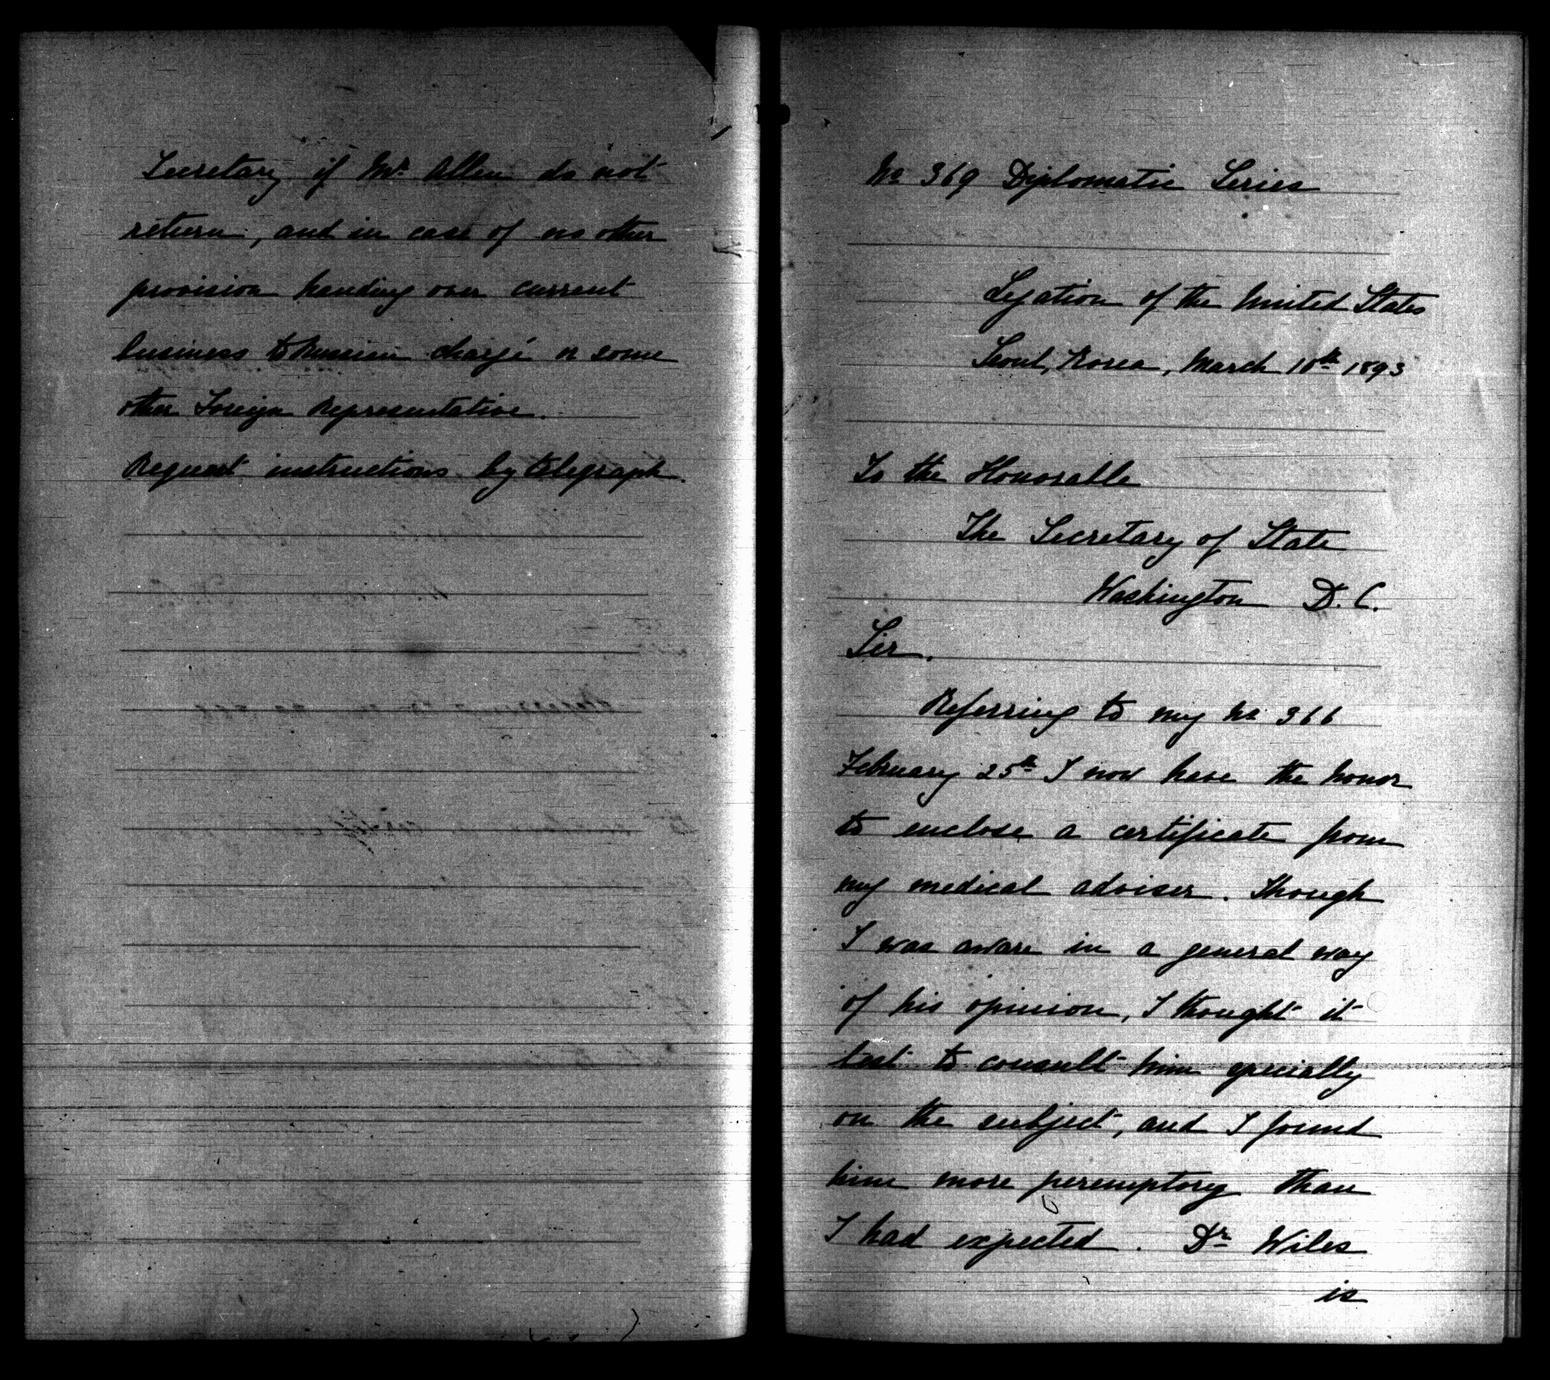 Secretary if Mr Allen do not
return, and in case of no other
provision handing over current
business to Russian chargé or some
other Foreign Representative.
Request instructions by telegraph.
No 369 Diplomatic Series
Legation of the United States
Seoul, Korea, March 10th 1893
To the Honorable
The Secretary of State
Washington D.C.
Sir.
Referring to my No 366
February 25th I now have the honor
to enclose a certificate from
my medical adviser. Though
I was aware in a general way
of his opinion, I thought it
best to consult him specially
on the subject, and I found
him more peremptory than
I had expected. Dr Wiles
is